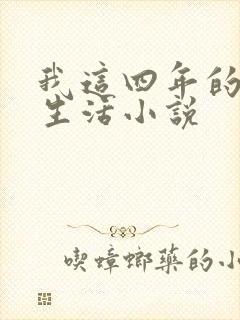 我這四年的
生活小說
喫蟑螂藥的小